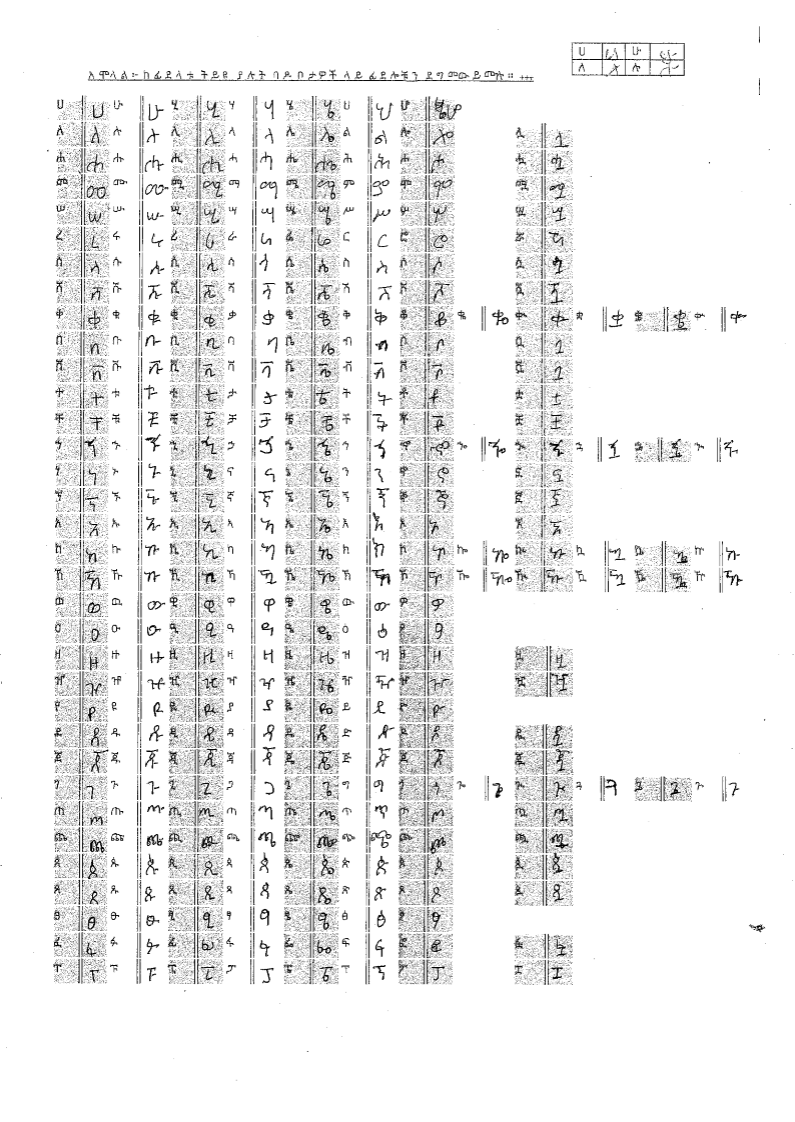 ሀ ሀ ሁ ሁ
ለ ለ ሉ ሉ
አሞላል፡- ከፊደላቱ ትይዩ ያሉት ባዶ ቦታዎች ላይ ፊደሎቹን ደግመው ይሙሉ።
ሀ ሀ ሁ ሁ ሂ ሂ ሃ ሃ ሄ ሄ ህ ህ ሆ ሆ
ለ ለ ሉ ሉ ሊ ሊ ላ ላ ሌ ሌ ል ል ሎ ሎ ሏ ሏ
ሐ ሐ ሑ ሑ ሒ ሒ ሓ ሓ ሔ ሔ ሕ ሕ ሖ ሖ ሗ ሗ
መ መ ሙ ሙ ሚ ሚ ማ ማ ሜ ሜ ም ም ሞ ሞ ሟ ሟ
ሠ ሠ ሡ ሡ ሢ ሢ ሣ ሣ ሤ ሤ ሥ ሥ ሦ ሦ ሧ ሧ
ረ ረ ሩ ሩ ሪ ሪ ራ ራ ሬ ሬ ር ር ሮ ሮ ሯ ሯ
ሰ ሰ ሱ ሱ ሲ ሲ ሳ ሳ ሴ ሴ ስ ስ ሶ ሶ ሷ ሷ
ሸ ሸ ሹ ሹ ሺ ሺ ሻ ሻ ሼ ሼ ሽ ሽ ሾ ሾ ሿ ሿ
ቀ ቀ ቁ ቁ ቂ ቂ ቃ ቃ ቄ ቄ ቅ ቅ ቆ ቆ ቈ ቈ ቊ ቊ ቋ ቋ ቌ ቌ ቍ ቍ
በ በ ቡ ቡ ቢ ቢ ባ ባ ቤ ቤ ብ ብ ቦ ቦ ቧ ቧ
ቨ ቨ ቩ ቩ ቪ ቪ ቫ ቫ ቬ ቬ ቭ ቭ ቮ ቮ ቯ ቯ
ተ ተ ቱ ቱ ቲ ቲ ታ ታ ቴ ቴ ት ት ቶ ቶ ቷ ቷ
ቸ ቸ ቹ ቹ ቺ ቺ ቻ ቻ ቼ ቼ ች ች ቾ ቾ ቿ ቿ
ኀ ኀ ኁ ኁ ኂ ኂ ኃ ኃ ኄ ኄ ኅ ኅ ኆ ኆ ኈ ኈ ኊ ኊ ኋ ኋ ኌ ኌ ኍ ኍ
ነ ነ ኑ ኑ ኒ ኒ ና ና ኔ ኔ ን ን ኖ ኖ ኗ ኗ
ኘ ኘ ኙ ኙ ኚ ኚ ኛ ኛ ኜ ኜ ኝ ኝ ኞ ኞ ኟ ኟ
አ አ ኡ ኡ ኢ ኢ ኣ ኣ ኤ ኤ እ እ ኦ ኦ ኧ ኧ
ከ ከ ኩ ኩ ኪ ኪ ካ ካ ኬ ኬ ክ ክ ኮ ኮ ኰ ኰ ኲ ኲ ኳ ኳ ኴ ኴ ኵ ኵ
ኸ ኸ ኹ ኹ ኺ ኺ ኻ ኻ ኼ ኼ ኽ ኽ ኾ ኾ ዀ ዀ ዂ ዂ ዃ ዃ ዄ ዄ ዅ ዅ
ወ ወ ዉ ዉ ዊ ዊ ዋ ዋ ዌ ዌ ው ው ዎ ዎ
ዐ ዐ ዑ ዑ ዒ ዒ ዓ ዓ ዔ ዔ ዕ ዕ ዖ ዖ
ዘ ዘ ዙ ዙ ዚ ዚ ዛ ዛ ዜ ዜ ዝ ዝ ዞ ዞ ዟ ዟ
ዠ ዠ ዡ ዡ ዢ ዢ ዣ ዣ ዤ ዤ ዥ ዥ ዦ ዦ ዧ ዧ
የ የ ዩ ዩ ዪ ዪ ያ ያ ዬ ዬ ይ ይ ዮ ዮ
ደ ደ ዱ ዱ ዲ ዲ ዳ ዳ ዴ ዴ ድ ድ ዶ ዶ ዷ ዷ
ጀ ጀ ጁ ጁ ጂ ጂ ጃ ጃ ጄ ጄ ጅ ጅ ጆ ጆ ጇ ጇ
ገ ገ ጉ ጉ ጊ ጊ ጋ ጋ ጌ ጌ ግ ግ ጎ ጎ ጐ ጐ ጒ ጒ ጓ ጓ ጔ ጔ ጕ ጕ
ጠ ጠ ጡ ጡ ጢ ጢ ጣ ጣ ጤ ጤ ጥ ጥ ጦ ጦ ጧ ጧ
ጨ ጨ ጩ ጩ ጪ ጪ ጫ ጫ ጬ ጬ ጭ ጭ ጮ ጮ ጯ ጯ
ጰ ጰ ጱ ጱ ጲ ጲ ጳ ጳ ጴ ጴ ጵ ጵ ጶ ጶ ጷ ጷ
ጸ ጸ ጹ ጹ ጺ ጺ ጻ ጻ ጼ ጼ ጽ ጽ ጾ ጾ ጿ ጿ
ፀ ፀ ፁ ፁ ፂ ፂ ፃ ፃ ፄ ፄ ፅ ፅ ፆ ፆ
ፈ ፈ ፉ ፉ ፊ ፊ ፋ ፋ ፌ ፌ ፍ ፍ ፎ ፎ ፏ ፏ
ፐ ፐ ፑ ፑ ፒ ፒ ፓ ፓ ፔ ፔ ፕ ፕ ፖ ፖ ፗ ፗ